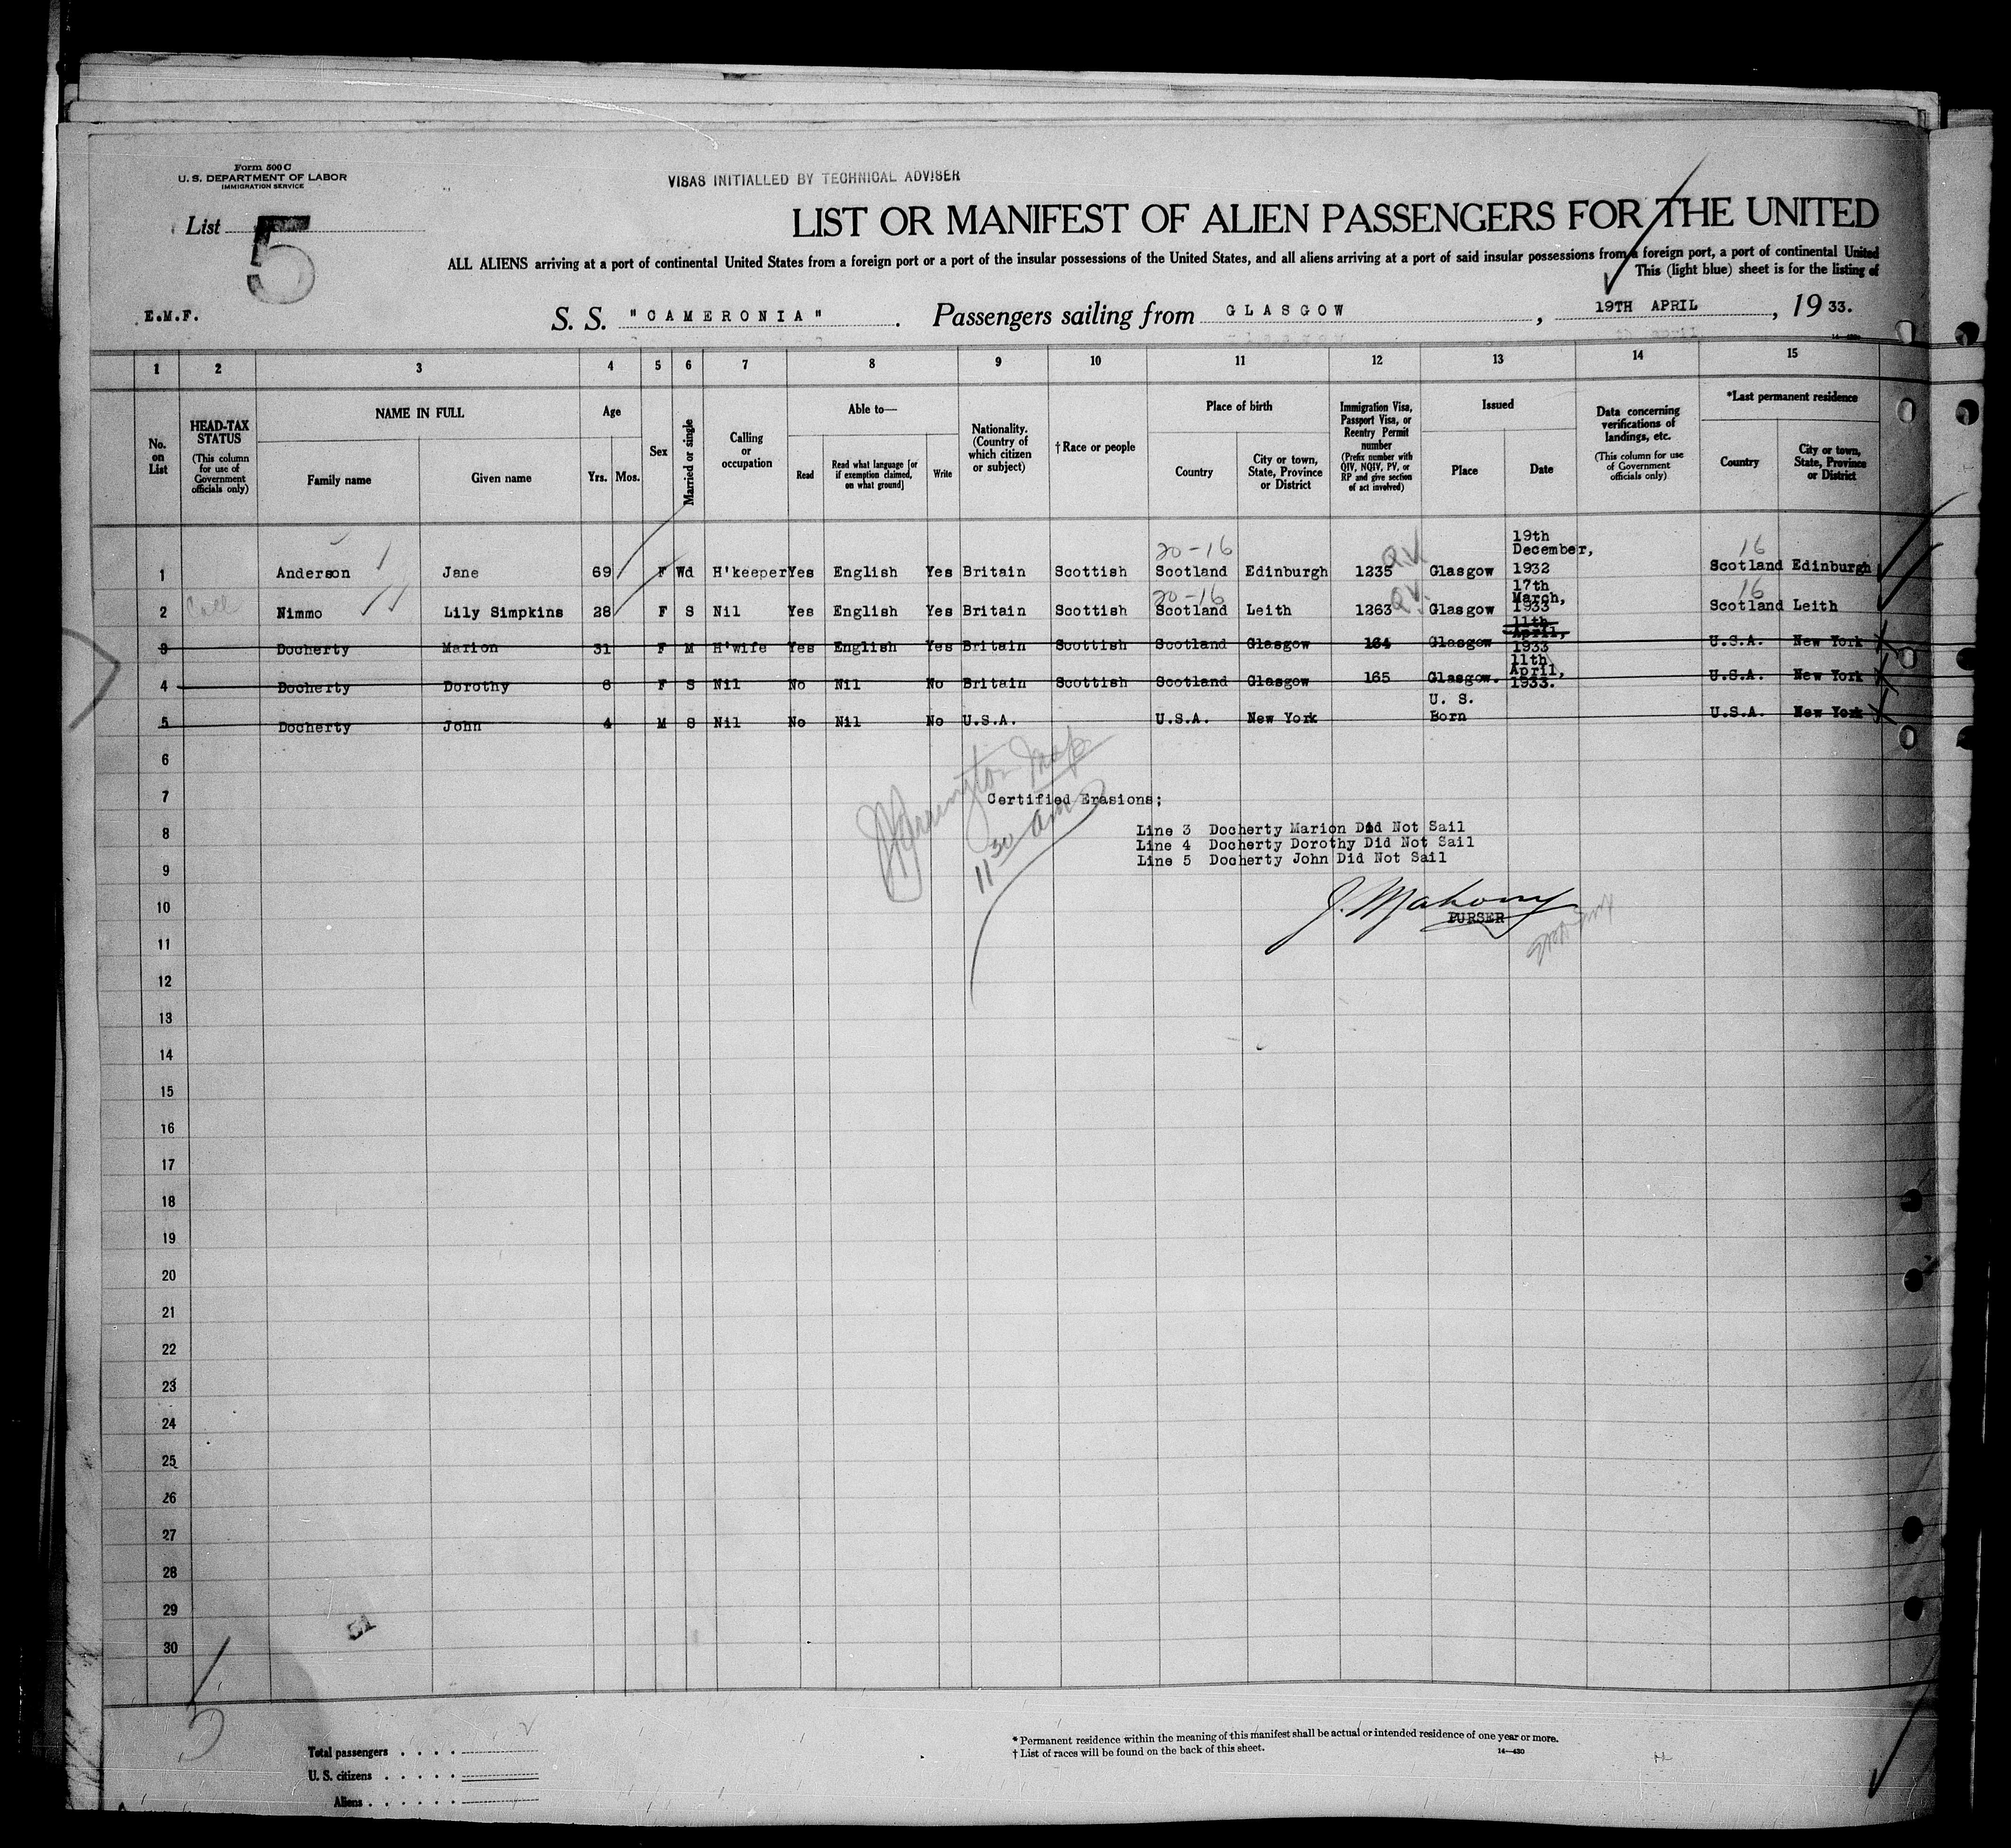 Form 500 C
U. S. DEPARTMENT OF LABOR
IMMIGRATION SERVICE
VISAS INITIALLED BY TECHNICAL ADVISER
List 5
LIST OR MANIFEST OF ALIEN PASSENGERS FOR THE UNITED
ALL ALIENS arriving at a port of continental United States from a foreign port or a port of the insular possessions of the United States, and all aliens arriving at a port of said insular possessions from a foreign port, a port of continental United
This (light blue) sheet is for the listing of
E.M.F. S. S. "CAMERONIA" . Passengers sailing from GLASGOW , 19TH APRIL , 19 33.
1 2 3 4 5 6 7 8 9 10 11 12 13 14 15
No. on List
HEAD-TAX STATUS (This column for use of Government officials only)
NAME IN FULL
Family name Given name
Age
Yrs. Mos.
Sex
Married or single
Calling or occupation
Able to—
Read Read what language [or if exemption claimed, on what ground] Write
Nationality. (Country of which citizen or subject)
†Race or people
Place of birth
Country City or town, State, Province or District
Immigration Visa, Passport Visa, or Reentry Permit number (Prefix number with QIV, NQIV, PV, or RP and give section of act involved)
Issued
Place Date
Data concerning verifications of landings, etc. (This column for use of Government officials only)
*Last permanent residence
Country City or town, State, Province or District
20-16 QV 16
1 Anderson Jane 69 F Wd H'keeper Yes English Yes Britain Scottish Scotland Edinburgh 1235 Glasgow 19th December, 1932 Scotland Edinburgh
20-16 QV. 16
2 Nimmo Lily Simpkins 28 F S Nil Yes English Yes Britain Scottish Scotland Leith 1263 Glasgow 17th March, 1933 Scotland Leith
3 Docherty Marion 31 F M H'wife Yes English Yes Britain Scottish Scotland Glasgow 164 Glasgow 11th April, 1933 U.S.A. New York
4 Docherty Dorothy 6 F S Nil No Nil No Britain Scottish Scotland Glasgow 165 Glasgow. 11th April, 1933. U.S.A. New York
5 Docherty John 4 M S Nil No Nil No U.S.A. U.S.A. New York U. S. Born U.S.A. New York
6
7
Certified Erasions;
8
Line 3 Docherty Marion Did Not Sail
Line 4 Docherty Dorothy Did Not Sail
Line 5 Docherty John Did Not Sail
9
11 30 am
10
J. Mahony
PURSER
11
12
13
14
15
16
17
18
19
20
21
22
23
24
25
26
27
28
29
30
Total passengers
U. S. citizens
Aliens
* Permanent residence within the meaning of this manifest shall be actual or intended residence of one year or more.
† List of races will be found on the back of this sheet.
14—430